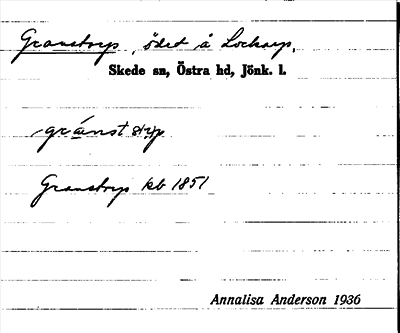 Granstorp, ödet å Lockarp,
Skede sn, Östra hd, Jönk. l.
gränstärp
Granstorp kb 1851
Annalisa Anderson 1936